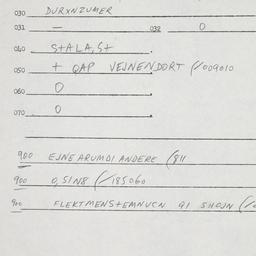 030 DURXNZUMER
031 — 032 0
040 S+ALA, S+
050 + QAP VEJNENDORT (/009010
060 0
070 0
900 EJNE ARUMDI ANDERE (811
900 0, SIN8 (/185060
900 FLEKTMENS+EMNVCN 91 SHOJN (/